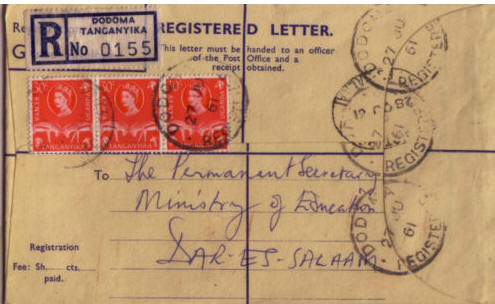 DODOMA
TANGANYIKA
R No 0155
REGISTERED LETTER.
This letter must be handed to an officer
of the Post Office and a
receipt obtained.
TANGANYIKA
TANGANYIKA
TANGANYIKA
DODOMA
27 JU
61
REGISTERED
DODOMA
27 JU
61
REGISTERED
28
61
REGISTERED
DODOMA
27 JU
61
REGISTERED
To The Permanent Secretary
Ministry of Education
DAR-ES-SALAAM.
Registration
Fee: Sh. cts.
paid.